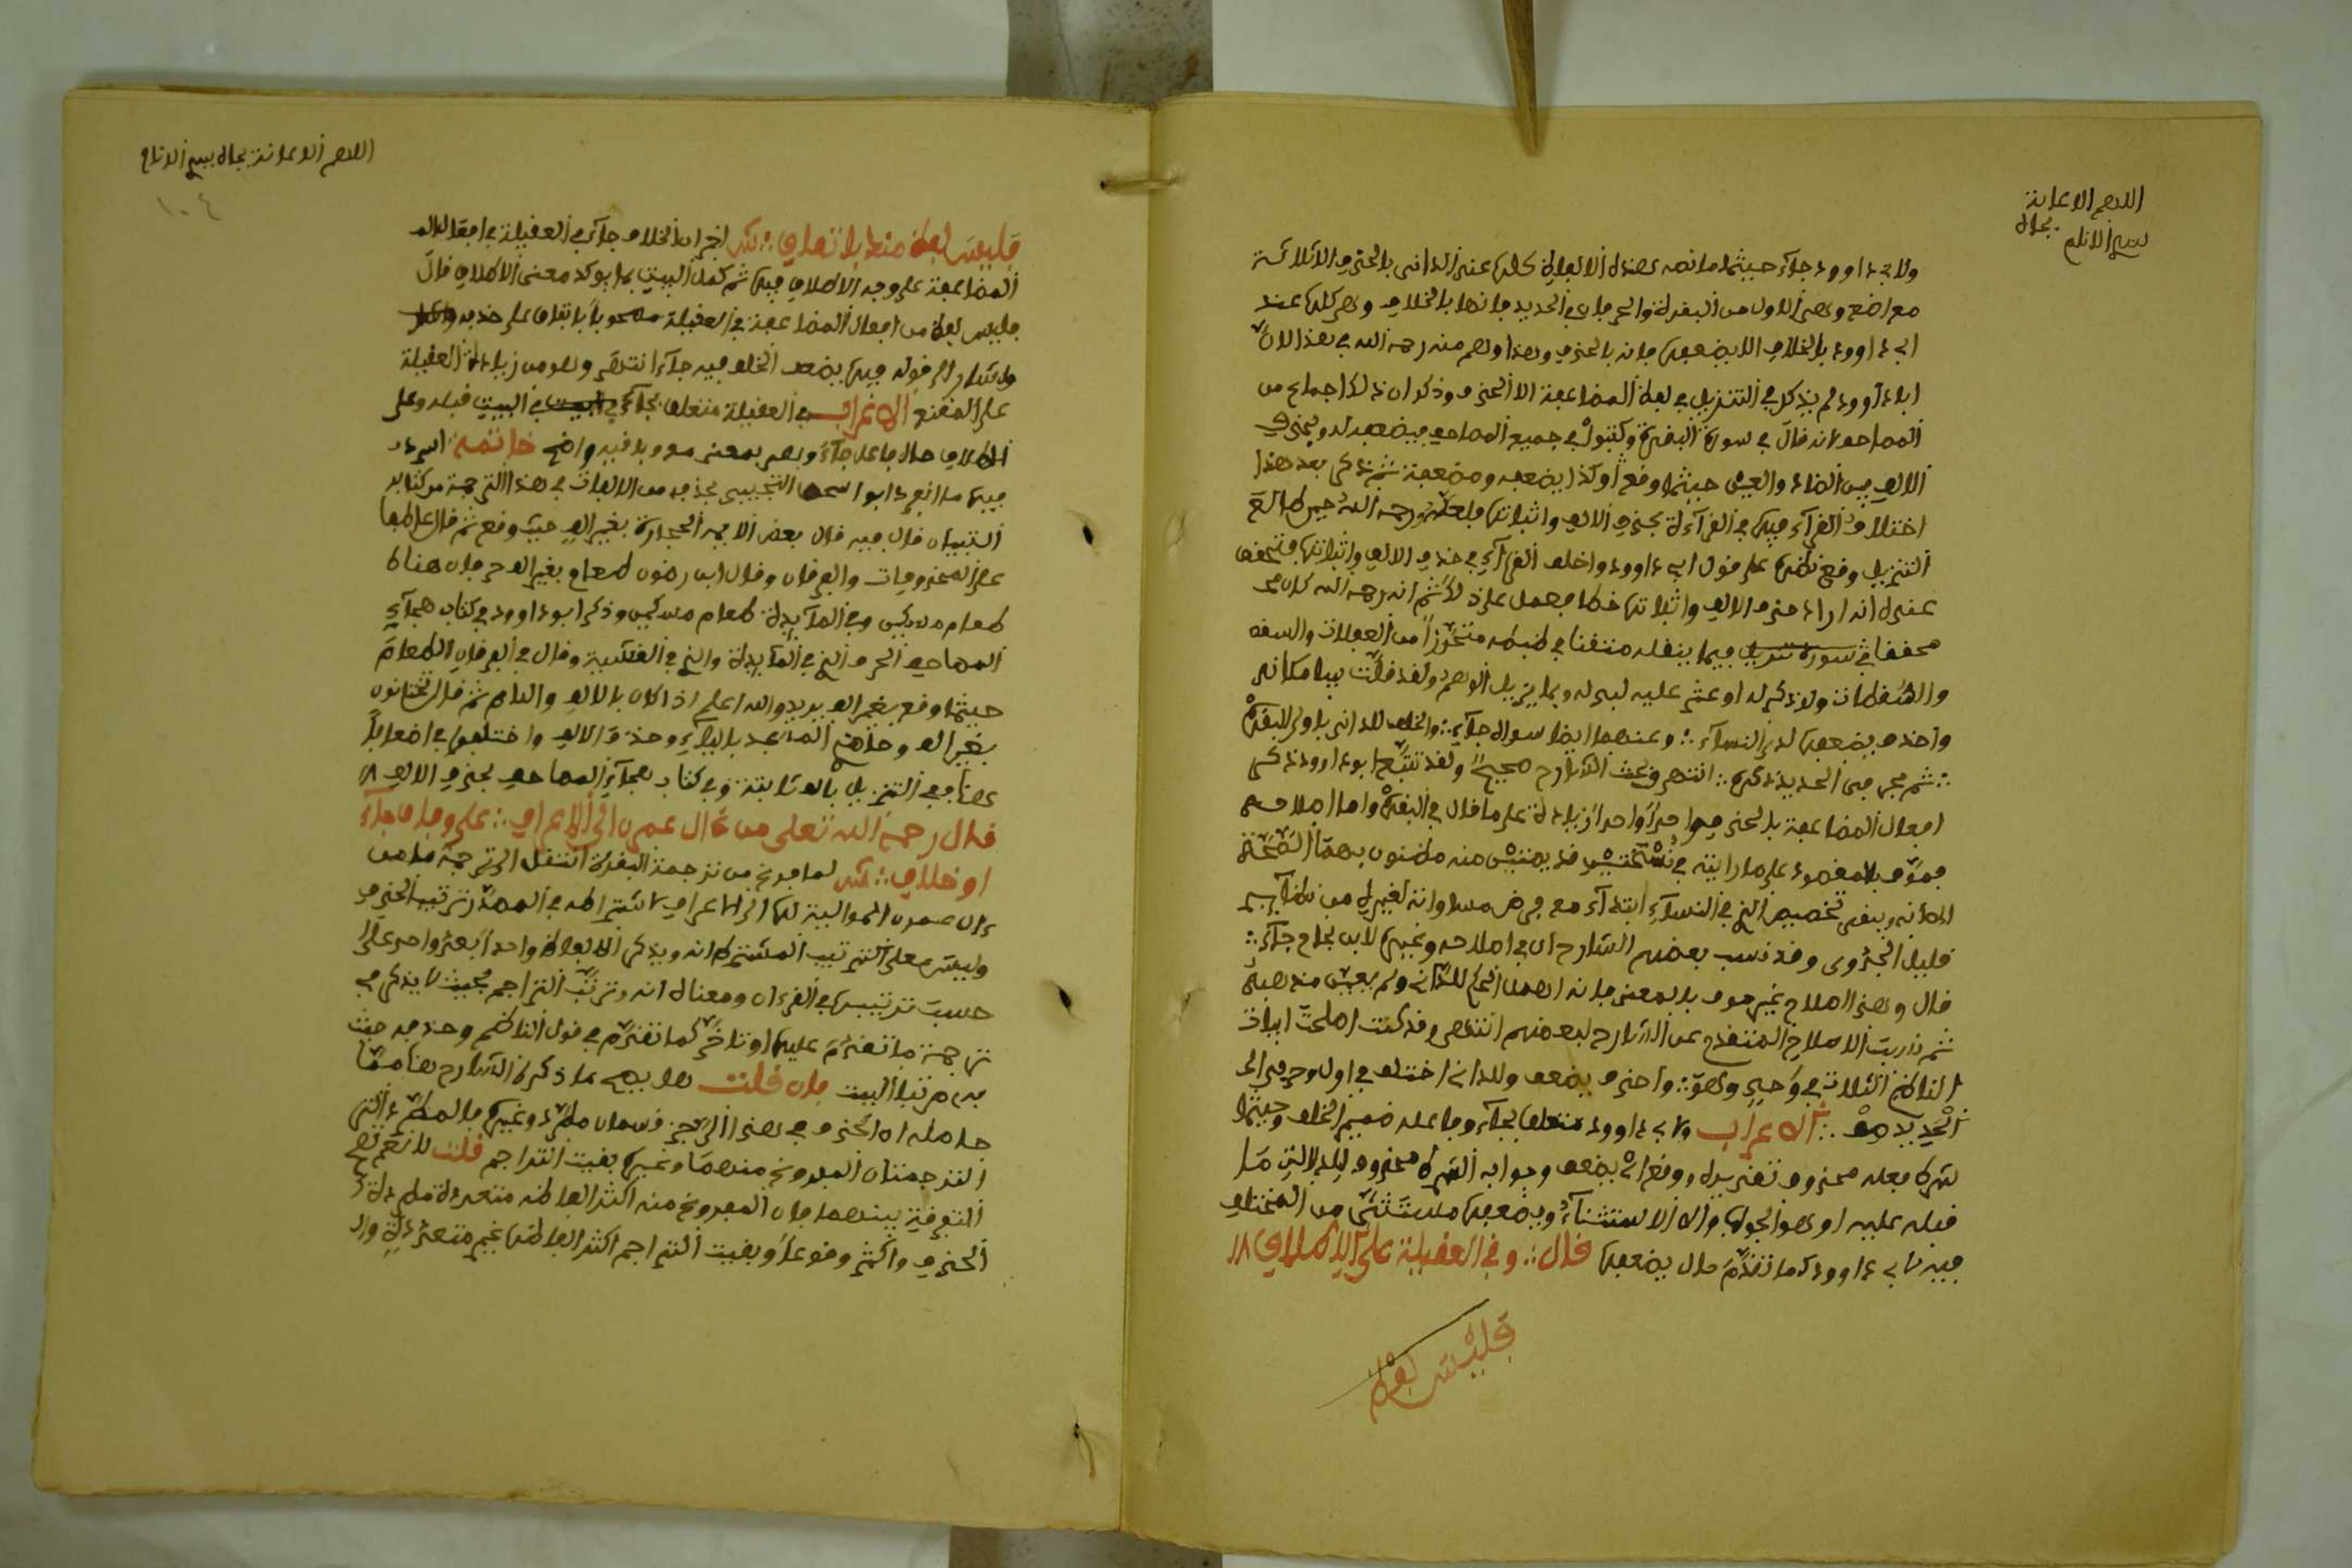 اللهم الاعانة
بجاه
سيد الانام
ولابي داوود جاء حيثما ما نصه هذه الالفاظ كلها عند الداني بالحذف الا ثلاثة
مواضع وهي الاول من البقرة والحرفان في الحديد فانها بالخلاف وهي كلها عند
ابي داوود بالخلاف الا يضعفها فانه بالحذف وهذا وهم منه رحمه الله في هذا لان
ابا داوود لم يذكر في التنزيل في لفظ المضاعفة الا الحذف وذكر ان ذلك اجماع من
المصاحف لانه قال في سورة البقرة وكتبوا في جميع المصاحف فيضعفه له وبحذف
الالف بين الضاد والعين حيثما وقع وكذا يضعف ومضعفة ثم ذكر بعد هذا
اختلاف القراء فيها في القراءة بحذف الالف واثباتها فلعله رحمه الله حين طالع
التنزيل وقع نظره على قول ابي داوود واختلف القراء في حذف الالف واثباتها فتحقق
عنده انه اراد حذف الالف واثباتها خطا فعمل على ذلك ثم انه رحمه الله كان
محققا فيما ينقله متقنا في ضبطه متحرزا من الغفلات والسقه
والسقطات ولو ذكر له او عثر عليه لبدله وبما يزيل الوهم ولقد قلت بيتا مكانه
واحذف يضعفها لدى النساء :: وعنهما ايضا سواه جاء :: والخلف للداني باولى البقرة
:: ثم بحرفي الحديد ذكره :: انتهى وبحث الشارح صحيح ولقد تتبع ابو داوود ذكر
افعال المضاعفة بالحذف واحدا واحدا زيادة على ما قال في البقرة واما اصلاحه
فموف بالمقصود على ما رايته في نسختين قديمتين منه مظنون بهما الصحة
الا انه وبقي تخصيص الذي في النساء ابتداء مع فرض مساواته لغيره من نظايره
قليل الجدوى وقد نسب بعضهم الشارح ان في اصلاحه وغيره لابن بجاح جاء ::
قال وهذا اصلاح غير موف بالمعنى فانه اهمل الحكم للداني ولم يعين مذهبه
ثم رايت الاصلاح المتقدم عن الشارح لبعضهم انتهى وقد كنت اصلحت ابيات
الناظم الثلاث في وهو :: واحذف يضعف وللداني اختلف في اول وحرفي الى
الحديد صف :: الاعراب ولابي داوود متعلق بجاء وفاعله ضمير الخلف وحيثما
شرط فعله محذوف تقديره ووقع اي يضعف وجواب الشرط محذوف لدلالة ما
قبله عليه او هو الجواب والا الاستثناء ويضعفها مستثنى من المختلف
فيه لابي داوود كما تقدم حال يضعفها قال :: وفي العقيلة على الاطلاق
فليس لفظ
اللهم الاعانة بجاه سيد الانام
١٠٤
فليس لفظ منها باتفاق :: ش اخبر ان الخلاف جاء في العقيلة في افعال
المضاعفة على وجه الاطلاق فيها ثم كمل البيت بما يوكد معنى الاطلاق قال
فليس لفظ من افعال المضاعفة في العقيلة مصحوبا باتفاق على حذفه
واشار الى قوله فيها يضعف الخلف فيه جاء انتهى وهو من زيادة العقيلة
على المقنع الاعراب في العقيلة متعلق بجاء في البيت قبله وعلى
الاطلاق حال فاعل جاء وهي بمعنى مع وباقيه واضح خاتمة اسرد
فيها ما انفرد ابو اسحق التجيبي بحذفه من الالفات في هذا الترجمة من كتابه
التبيان قال فيه قال بعض الايمه الحجارة بغير الف حيث وقع ثم قال عاطفا
على المحذوفات والفرقان وقال ابن رضون طعام بغير الف حرفان هناك
طعام مسكين وفي المايدة طعام مسكين وذكر ابو داوود في كتاب هجاء
المصاحف الحرف الذي في المايدة والذي في الغشية وقال في الفرقان الطعام
حيثما وقع بغير الف يريد والله اعلم اذا كان بالالف واللام ثم قال تختانون
بغير الف وحاضري المسجد بالياء وحذف الالف واختلفوا في اضعافا
هنا ففي التنزيل بالف ثابتة وفي كتاب هجاء المصاحف بحذف الالف
قال رحمه الله تعلى من ءال عمرن الى الاعراف :: على وفاق جاء
او خلاف :: ش لما فرغ من ترجمة البقرة انتقل الى ترجمة ما من
ءال عمرن الموالية لها الى الاعراف لاشتراطه في الصدر ترتيب الحذف
وليس معنى الترتيب المشترط انه ويذكر الالفاظ واحدا بعد واحد على
حسب ترتيبها في القرءان ومعناه انه وترتب التراجم بحيث لا يذكر في
ترجمة ما تقدم عليها او تاخر كما تقدم في قول الناظم وحذفه جئت
به مرتبا البيت فان قلت هل يصح ما ذكره الشارح هنا مما
حاصله ان الحذف في هذا الرجز قسمان مطرد وغيره فالمطرد التي
الترجمتان المفروغ منهما وغيره بقيت التراجم قلت لا نعم تصح
التفرقة بينهما فان المفروغ منه اكثر الفاظه متعددة مطردة
الحذف واكثر وقوعا وبقيت التراجم اكثر الفاظها غير متعددة والا